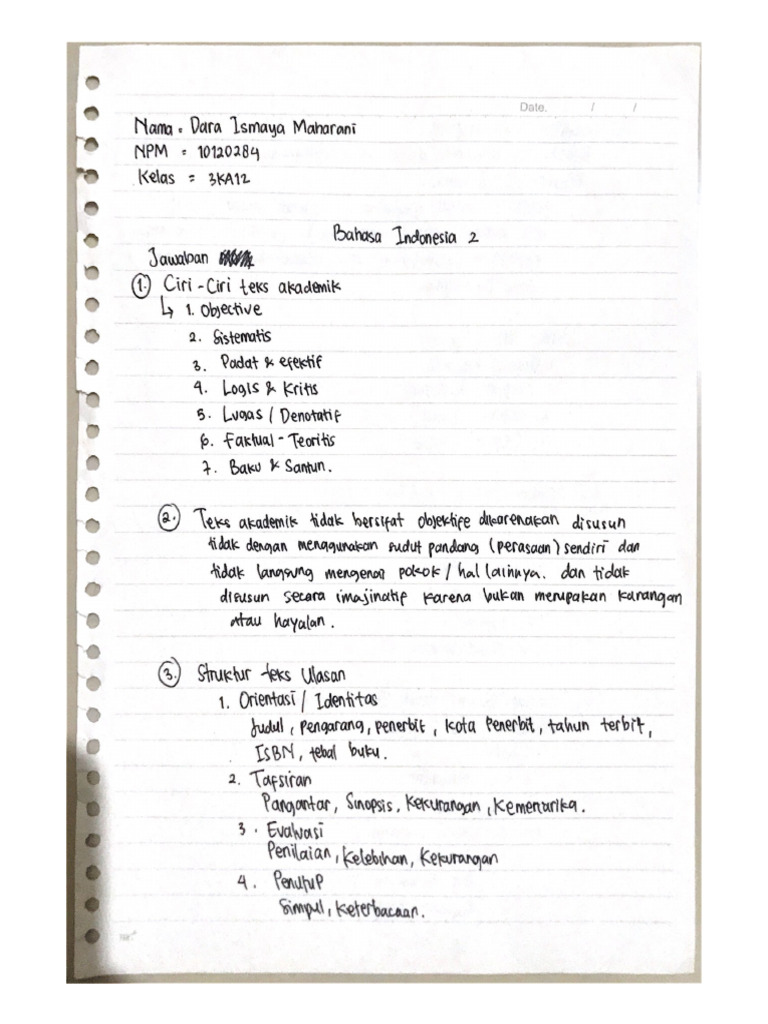 Date. / /
Nama = Dara Ismaya Maharani
NPM = 10120284
Kelas = 3KA12
Bahasa Indonesia 2
Jawaban
1. Ciri-Ciri teks akademik
↳ 1. Objective
2. Sistematis
3. Padat & efektif
4. Logis & Kritis
5. Lugas / Denotatif
6. Faktual - Teoritis
7. Baku & Santun.
2. Teks akademik tidak bersifat objektife dikarenakan disusun
tidak dengan menggunakan sudut pandang (perasaan) sendiri dan
tidak langsung mengenai pokok / hal lainnya. dan tidak
disusun secara imajinatif karena bukan merupakan karangan
atau hayalan.
3. Struktur teks Ulasan
1. Orientasi / Identitas
Judul, pengarang, penerbit, Kota Penerbit, tahun terbit,
ISBN, tebal buku.
2. Tafsiran
Pangantar, Sinopsis, Kekurangan, Kemenarika.
3. Evaluasi
Penilaian, Kelebihan, Kekurangan
4. Penutup
Simpul, Keterbacaan.